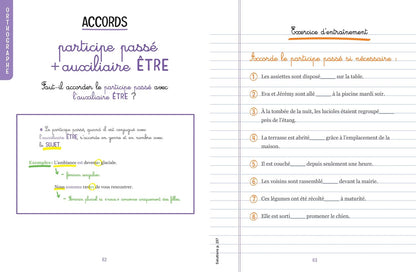 ORTHOGRAPHE
ACCORDS
participe passé
+ auxiliaire ÊTRE
Faut-il accorder le participe passé avec
l'auxiliaire ÊTRE ?
Le participe passé, quand il est conjugué avec
l'auxiliaire ÊTRE, s'accorde en genre et en nombre avec
le SUJET.
Exemples : L'ambiance est devenue glaciale.
→ féminin singulier.
Nous sommes ravis de vous rencontrer.
62
Exercice d'entraînement
Accorde le participe passé si nécessaire :
1 Les assiettes sont disposé_____ sur la table.
2 Eva et Jérémy sont allé_____ à la piscine mardi soir.
3 À la tombée de la nuit, les lucioles étaient regroupé_____
près de l'étang.
4 La terrasse est abrité_____ grâce à l'emplacement de la
maison.
5 Il est couché_____ depuis seulement une heure.
6 Les voisins sont rassemblé_____ devant la mairie.
7 Ces légumes ont été récolté_____ à maturité.
8 Elle est sorti_____ promener le chien.
63